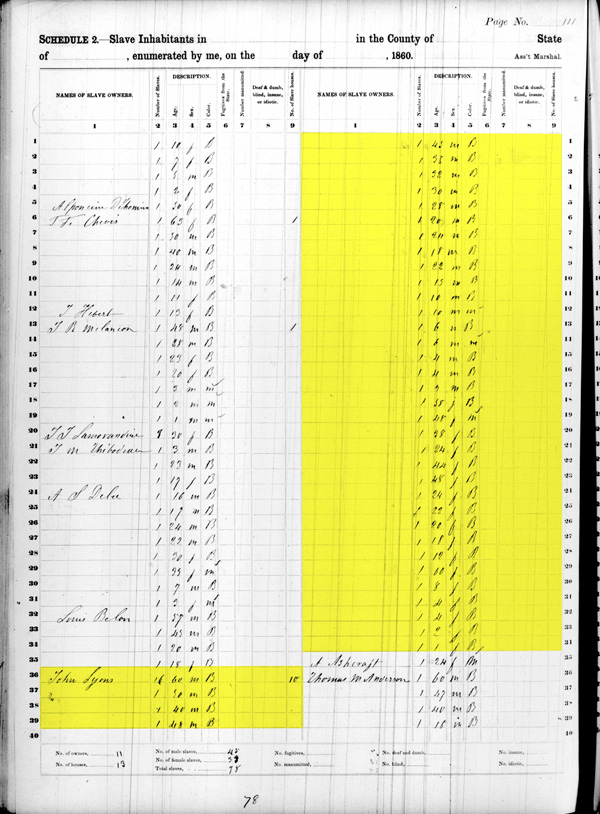 Page No. 111
SCHEDULE 2.—Slave Inhabitants in in the County of State
of , enumerated by me, on the day of , 1860. Ass't Marshal.
NAMES OF SLAVE OWNERS. Number of Slaves. DESCRIPTION. Age. Sex. Color. Fugitives from the State. Number manumitted. Deaf & dumb, blind, insane, or idiotic. No. of Slave houses. NAMES OF SLAVE OWNERS. Number of Slaves. DESCRIPTION. Age. Sex. Color. Fugitives from the State. Number manumitted. Deaf & dumb, blind, insane, or idiotic. No. of Slave houses.
1 2 3 4 5 6 7 8 9 1 2 3 4 5 6 7 8 9
1 1 10 f B 1 45 m B 1
2 1 7 f B 1 35 m B 2
3 1 5 m B 1 32 m B 3
4 1 2 f B 1 30 m B 4
5 1 30 f B 1 28 m B 5
6 Chevis 1 65 f B 1 1 20 m B 6
7 1 30 m B 1 m B 7
8 1 40 m B 1 18 m B 8
9 1 24 m B 1 22 m B 9
10 1 14 m B 1 15 m B 10
11 1 11 f B 1 10 m B 11
12 T Hebert 1 13 f B 1 10 m m 12
13 T B Melancon 1 48 m B 1 1 6 B 13
14 1 28 m B 1 6 m m 14
15 1 23 f B 1 4 m B 15
16 1 20 f B 1 4 m B 16
17 1 m m 1 m B 17
18 1 2 m m 1 35 f B 18
19 1 1 m m 1 48 f m 19
20 30 f B 1 38 f B 20
21 T M Thibodeau 1 3 m B 1 24 f B 21
22 1 23 m B 1 44 f B 22
23 1 17 f B 1 48 f B 23
24 A S 1 16 m B 1 24 f B 24
25 1 17 m B 1 22 f B 25
26 1 24 m B 1 20 f B 26
27 1 22 m B 1 18 f B 27
28 1 30 f B 1 12 f B 28
29 1 35 f m 1 60 f B 29
30 1 7 m B 1 8 f B 30
31 1 3 f m 1 4 f B 31
32 Louis Belon 1 57 m B 1 4 f B 32
33 1 45 m B 1 2 f B 33
34 1 20 m B 1 1 f B 34
35 1 18 f B A Ashcraft 1 24 f m 35
36 John Lyons 16 60 m B 10 Thomas M Anderson 1 60 m B 36
37 1 50 m B 1 47 m B 37
38 1 40 m B 1 40 m B 38
39 1 48 m B 1 18 m B 39
40 40
No. of owners, 11 No. of male slaves, No. of fugitives, No. deaf and dumb, No. insane,
No. of houses, 13 No. of female slaves, No. manumitted, No. blind, No. idiotic,
Total slaves, 78
78